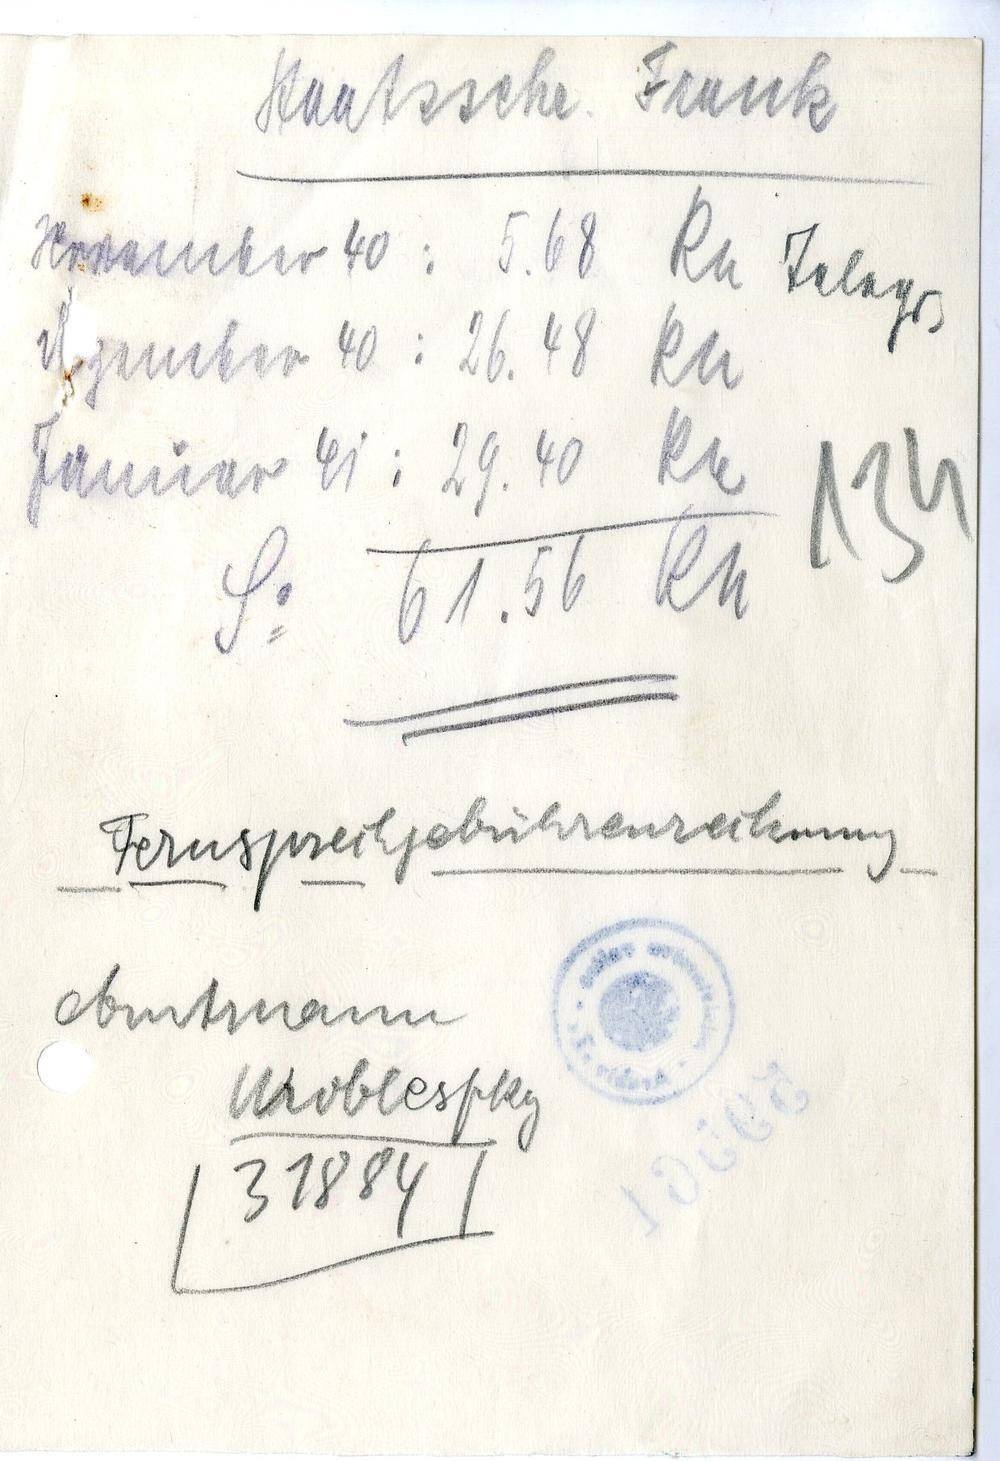 Staatssekr. Frank
November 40 : 5.68 Rm Telegr.
Dezember 40 : 26.48 Rm
Januar 41 : 29.40 Rm
134
S: 61.56 Rm
Fernsprechgebührenrechnung
Amtmann
Wroblespky
31884